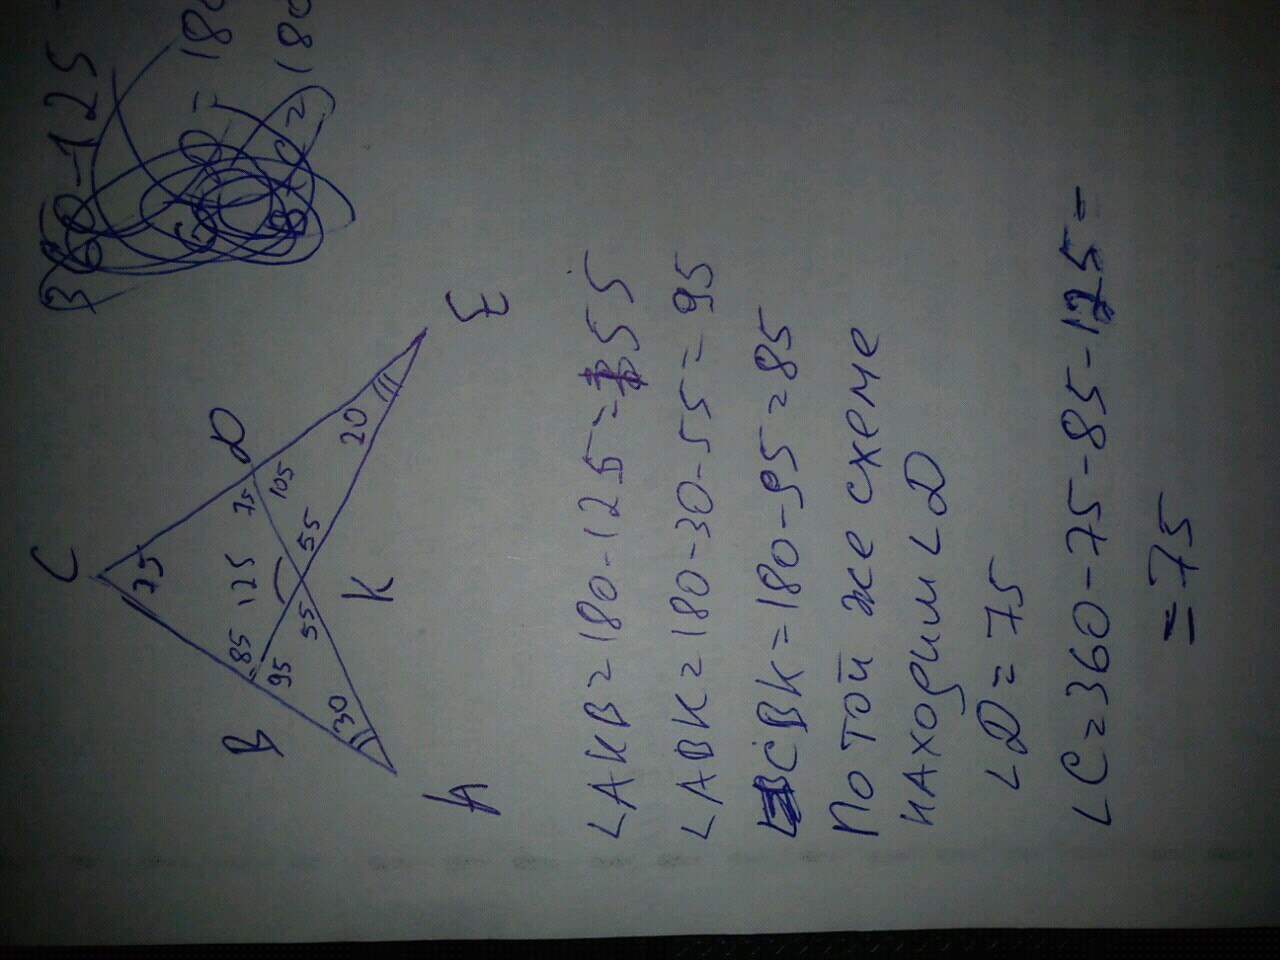 360-125
180
180
C
25
B
85
125
75
D
95
55
55
105
30
20
A
K
E
∠AKB=180-125=55
∠ABK=180-30-55=95
∠CBK=180-95=85
По той же схеме
находим ∠D
∠D=75
∠C=360-75-85-125=
=75